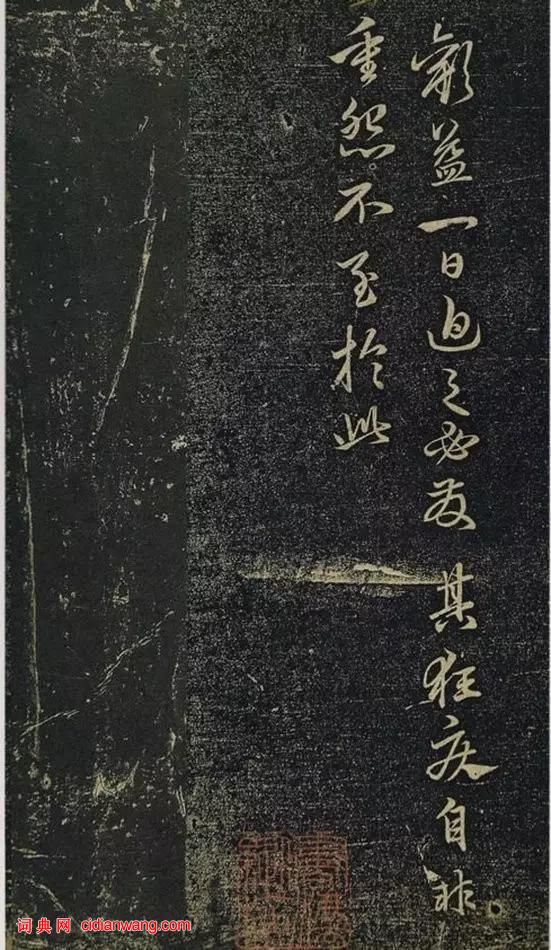 歡益一日迫之必發其狂疾自非
重怨不至於此
词典网 cidianwang.com